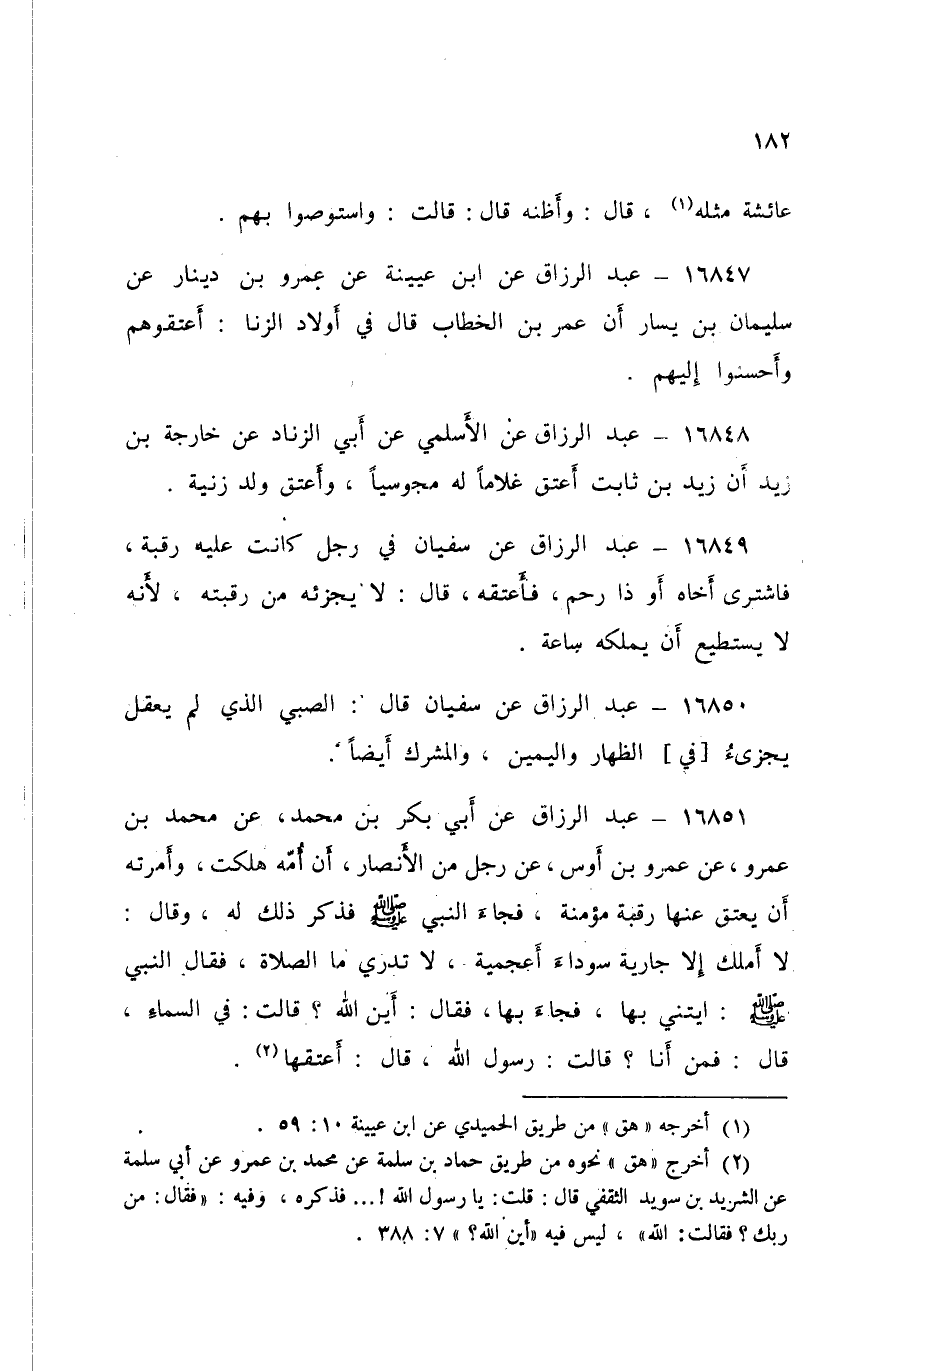 ١٨٢
عائشة مثله(١) ، قال : وأظنه قال : قالت : واستوصوا بهم .
١٦٨٤٧ – عبد الرزاق عن ابن عيينة عن عمرو بن دينار عن
سليمان بن يسار أن عمر بن الخطاب قال في أولاد الزنا : أعتقوهم
وأحسنوا إليهم .
١٦٨٤٨ – عبد الرزاق عن الأسلمي عن أبي الزناد عن خارجة بن
زيد أن زيد بن ثابت أعتق غلاماً له مجوسياً ، وأعتق ولد زنية .
١٦٨٤٩ – عبد الرزاق عن سفيان في رجل كانت عليه رقبة ،
فاشترى أخاه أو ذا رحم ، فأعتقه ، قال : لا يجزئه من رقبته ، لأنه
لا يستطيع أن يملكه ساعة .
١٦٨٥٠ – عبد الرزاق عن سفيان قال : الصبي الذي لم يعقل
يجزىءُ [في] الظهار واليمين ، والمشرك أيضاً .
١٦٨٥١ – عبد الرزاق عن أبي بكر بن محمد ، عن محمد بن
عمرو ، عن عمرو بن أوس ، عن رجل من الأنصار ، أن أُمّه هلكت ، وأمرته
أن يعتق عنها رقبة مؤمنة ، فجاءَ النبي ﷺ فذكر ذلك له ، وقال :
لا أملك إلا جارية سوداءَ أعجمية ، لا تدري ما الصلاة ، فقال النبي
ﷺ : ايتني بها ، فجاءَ بها ، فقال : أين الله ؟ قالت : في السماءِ ،
قال : فمن أنا ؟ قالت : رسول الله ، قال : أعتقها(٢) .
(١) أخرجه « هق » من طريق الحميدي عن ابن عيينة ١٠ : ٥٩ .
(٢) أخرج « هق » نحوه من طريق حماد بن سلمة عن محمد بن عمرو عن أبي سلمة
عن الشريد بن سويد الثقفي قال : قلت : يا رسول الله !... فذكره ، وفيه : « فقال : من
ربك ؟ فقالت : الله » ، ليس فيه « أين الله؟ » ٧ : ٣٨٨ .